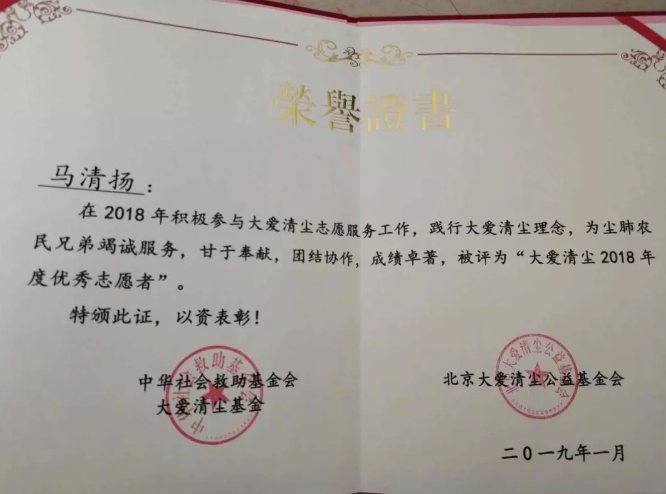 榮譽證書
马清扬：
在2018年积极参与大爱清尘志愿服务工作，践行大爱清尘理念，为尘肺农
民兄弟竭诚服务，甘于奉献，团结协作，成绩卓著，被评为“大爱清尘2018年
度优秀志愿者”。
特颁此证，以资表彰！
中华社会救助基金会
大爱清尘基金
北京大爱清尘公益基金会
二0一九年一月